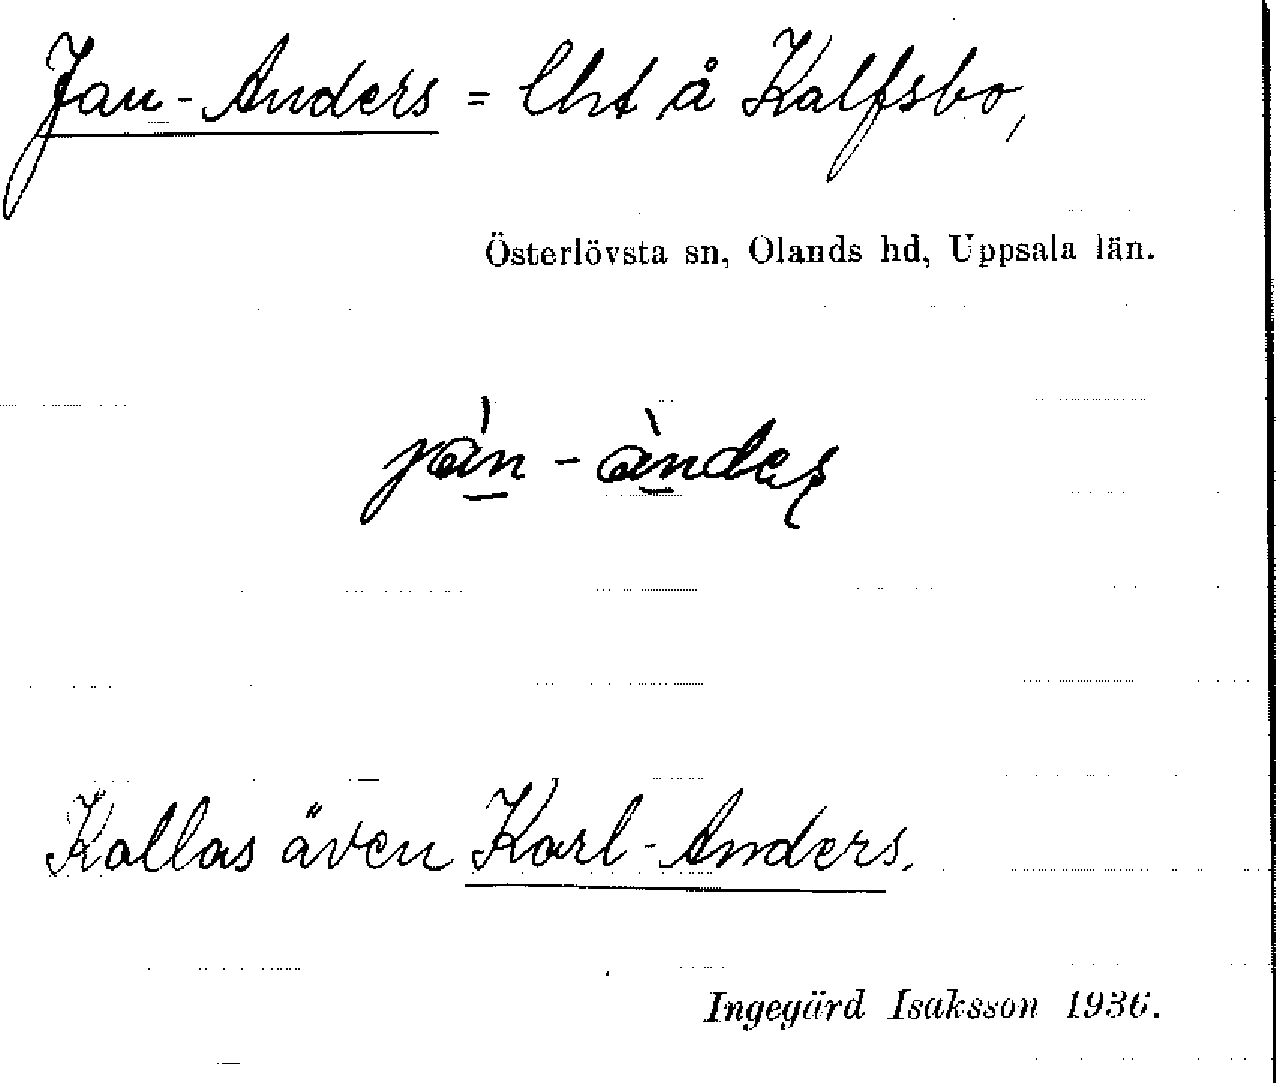 Jan-Anders = lht å Kalfsbo,
Österlövsta sn, Olands hd, Uppsala län.
jàn - àndes
Kallas även Karl-Anders.
Ingegärd Isaksson 1936.